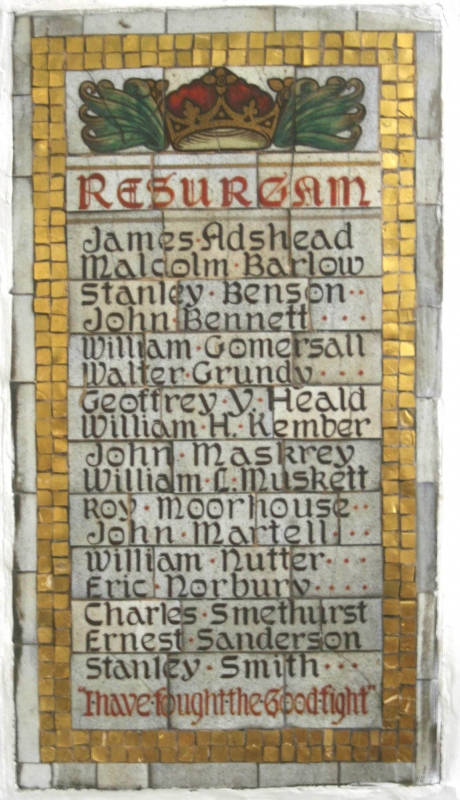 RESURGAM
James·Adshead
Malcolm·Barlow
Stanley·Benson··
John·Bennett···
William·Gomersall
Walter·Grundy····
Geoffrey·V·Heald
William·H·Kember
John·Maskrey
William·L·Muskett
Roy·Moorhouse··
John·Martell···
William·Nutter···
Eric·Norbury····
Charles·Smethurst
Ernest·Sanderson
Stanley·Smith···
"I·have·fought·the·Good·fight"